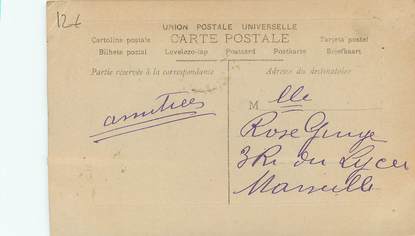 12€
UNION POSTALE UNIVERSELLE
CARTE POSTALE
Cartolina postale Tarjeta postal
Bilhete postal Levelezo-lap Postcard Postkarte Briefkaart
Partie réservée à la correspondance
Adresse du destinataire
amitiées
M lle
Rose
3 R du Lycée
Marseille